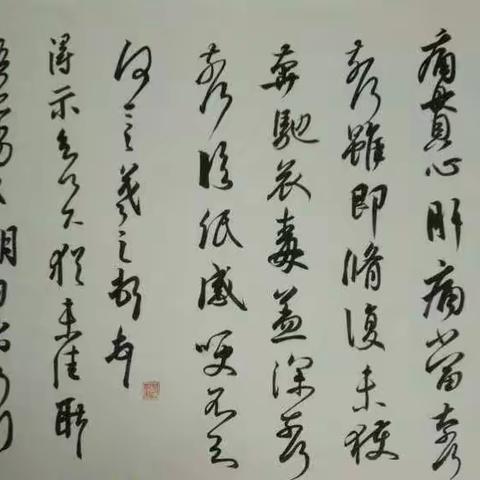 痛貫心肝痛當奈何
奈何雖即脩復未獲
奔馳哀毒益深奈何
奈何臨紙感哽不知
何言羲之頓首
得示知足下猶未佳耿
明日出乃行